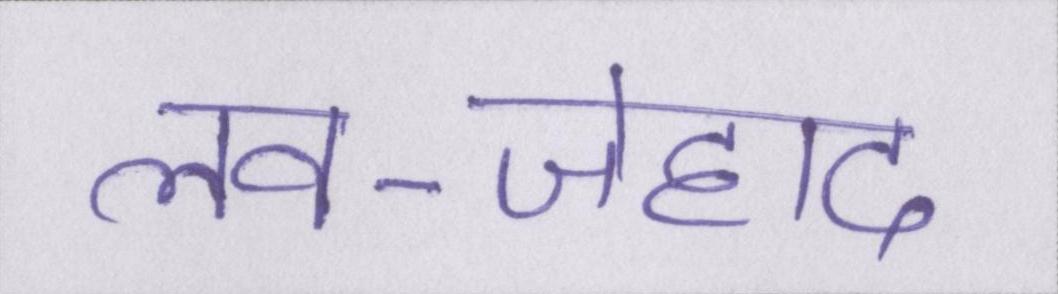 लव-जेहाद